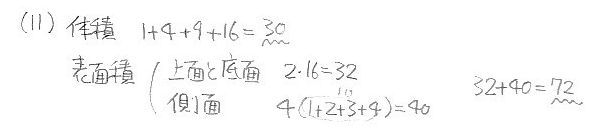 (11) 体積 1+4+9+16=30
表面積 ( 上面と底面 2·16=32
側面 4(1+2+3+4)=40 32+40=72